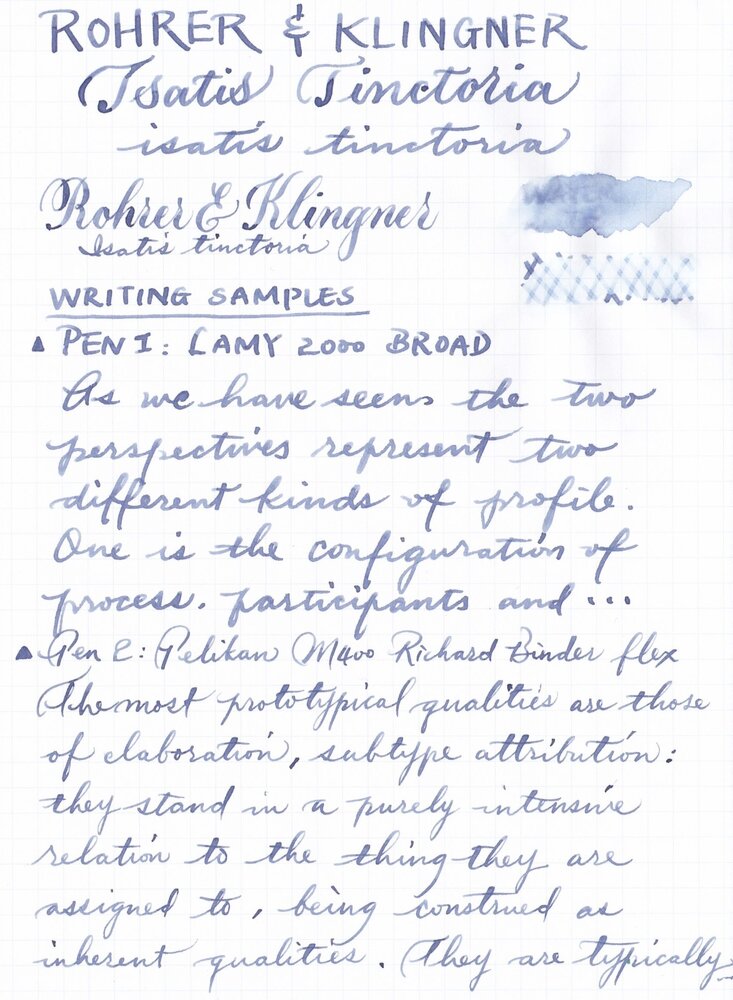 ROHRER & KLINGNER
Isatis Tinctoria
isatis tinctoria
Rohrer & Klingner
Isatis tinctoria
WRITING SAMPLES
▲ PEN I: LAMY 2000 BROAD
As we have seen the two
perspectives represent two
different kinds of profile.
One is the configuration of
process. participants and ...
▲ Pen 2: Pelikan M400 Richard Binder flex
The most prototypical qualities are those
of elaboration, subtype attribution:
they stand in a purely intensive
relation to the thing they are
assigned to, being construed as
inherent qualities. They are typically